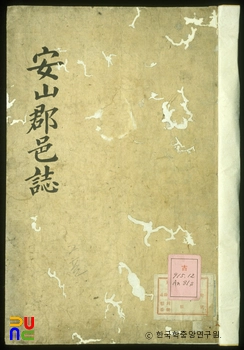 安山郡邑誌
古
915.12
An 91a
ⓒ 한국학중앙연구원